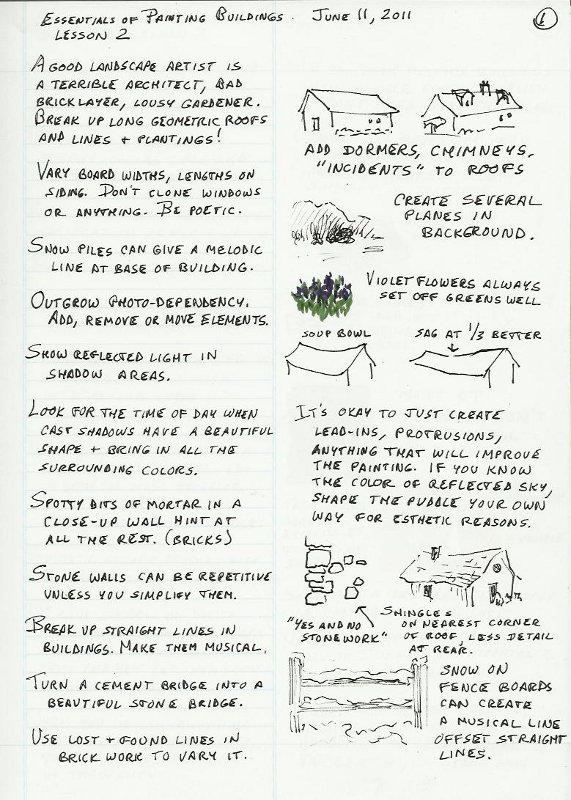 ESSENTIALS OF PAINTING BUILDINGS. JUNE 11, 2011
1
LESSON 2
A GOOD LANDSCAPE ARTIST IS
A TERRIBLE ARCHITECT, BAD
BRICKLAYER, LOUSY GARDENER.
BREAK UP LONG GEOMETRIC ROOFS
AND LINES + PLANTINGS!
VARY BOARD WIDTHS, LENGTHS ON
SIDING. DON'T CLONE WINDOWS
OR ANYTHING. BE POETIC.
SNOW PILES CAN GIVE A MELODIC
LINE AT BASE OF BUILDING.
OUTGROW PHOTO-DEPENDENCY.
ADD, REMOVE OR MOVE ELEMENTS.
SHOW REFLECTED LIGHT IN
SHADOW AREAS.
LOOK FOR THE TIME OF DAY WHEN
CAST SHADOWS HAVE A BEAUTIFUL
SHAPE + BRING IN ALL THE
SURROUNDING COLORS.
SPOTTY BITS OF MORTAR IN A
CLOSE-UP WALL HINT AT
ALL THE REST. (BRICKS)
STONE WALLS CAN BE REPETITIVE
UNLESS YOU SIMPLIFY THEM.
BREAK UP STRAIGHT LINES IN
BUILDINGS. MAKE THEM MUSICAL.
TURN A CEMENT BRIDGE INTO A
BEAUTIFUL STONE BRIDGE.
USE LOST + FOUND LINES IN
BRICK WORK TO VARY IT.
ADD DORMERS, CHIMNEYS,
"INCIDENTS" TO ROOFS
CREATE SEVERAL
PLANES IN
BACKGROUND.
VIOLET FLOWERS ALWAYS
SET OFF GREENS WELL
SOUP BOWL
SAG AT 1/3 BETTER
IT'S OKAY TO JUST CREATE
LEAD-INS, PROTRUSIONS,
ANYTHING THAT WILL IMPROVE
THE PAINTING. IF YOU KNOW
THE COLOR OF REFLECTED SKY,
SHAPE THE PUDDLE YOUR OWN
WAY FOR ESTHETIC REASONS.
"YES AND NO
STONEWORK"
SHINGLES
ON NEAREST CORNER
OF ROOF, LESS DETAIL
AT REAR.
SNOW ON
FENCE BOARDS
CAN CREATE
A MUSICAL LINE
OFFSET STRAIGHT
LINES.